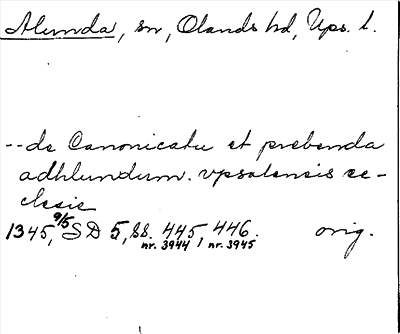 Alunda, sn, Olands hd, Ups. l.
--de Canonicatu et prebenda
adhlundum. vpsalensis ec-
clesie
1345, 9/5 SD 5, ss. 445, 446. orig.
nr. 3944 / nr. 3945